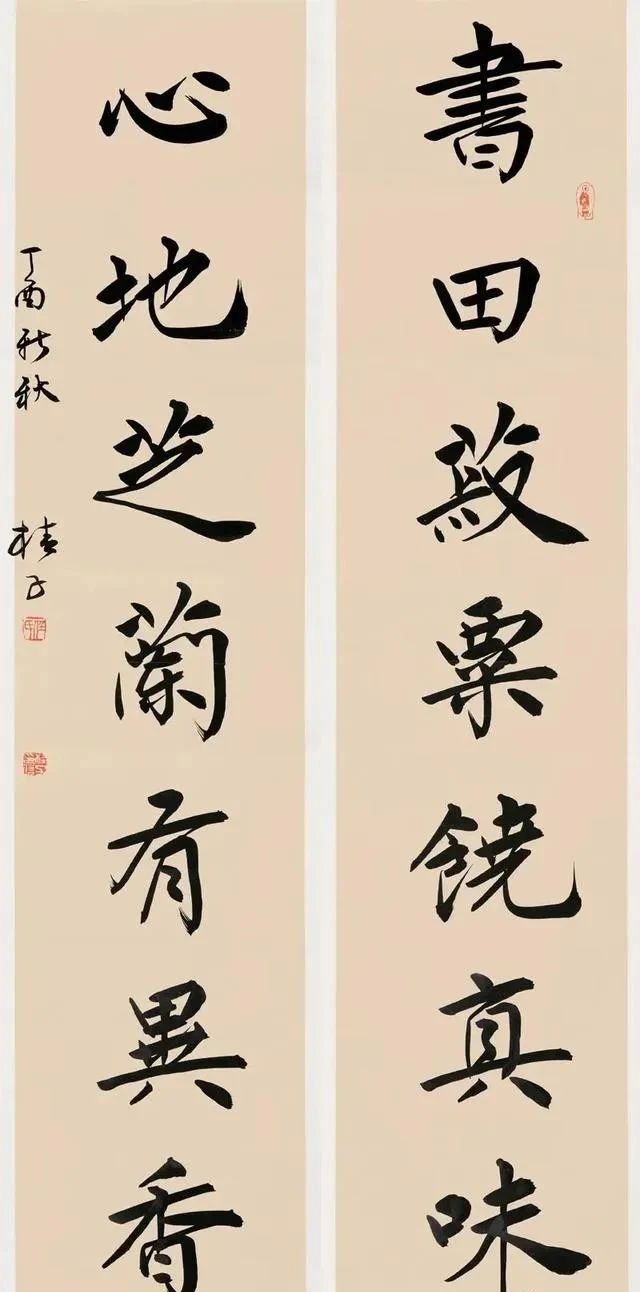 書田菽粟饒真味
心地芝蘭有異香
丁酉新秋